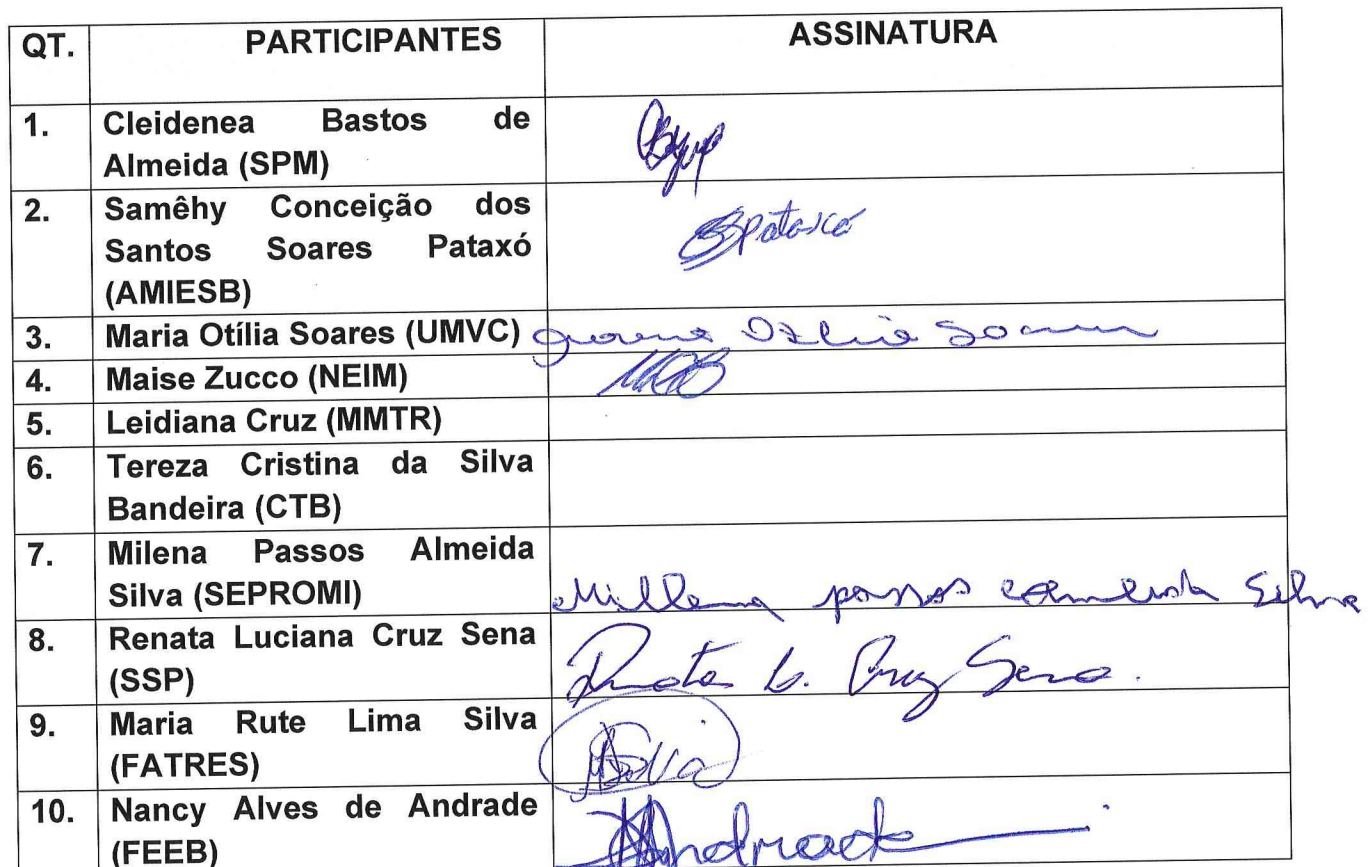 QT. PARTICIPANTES ASSINATURA
1. Cleidenea Bastos de
Almeida (SPM)
2. Samêhy Conceição dos
Santos Soares Pataxó
(AMIESB)
Pataxó
3. Maria Otília Soares (UMVC)
4. Maise Zucco (NEIM)
5. Leidiana Cruz (MMTR)
6. Tereza Cristina da Silva
Bandeira (CTB)
7. Milena Passos Almeida
Silva (SEPROMI)
Millena passos Silva
8. Renata Luciana Cruz Sena
(SSP)
Renata L. Cruz Sena.
9. Maria Rute Lima Silva
(FATRES)
10. Nancy Alves de Andrade
(FEEB)
Andrade